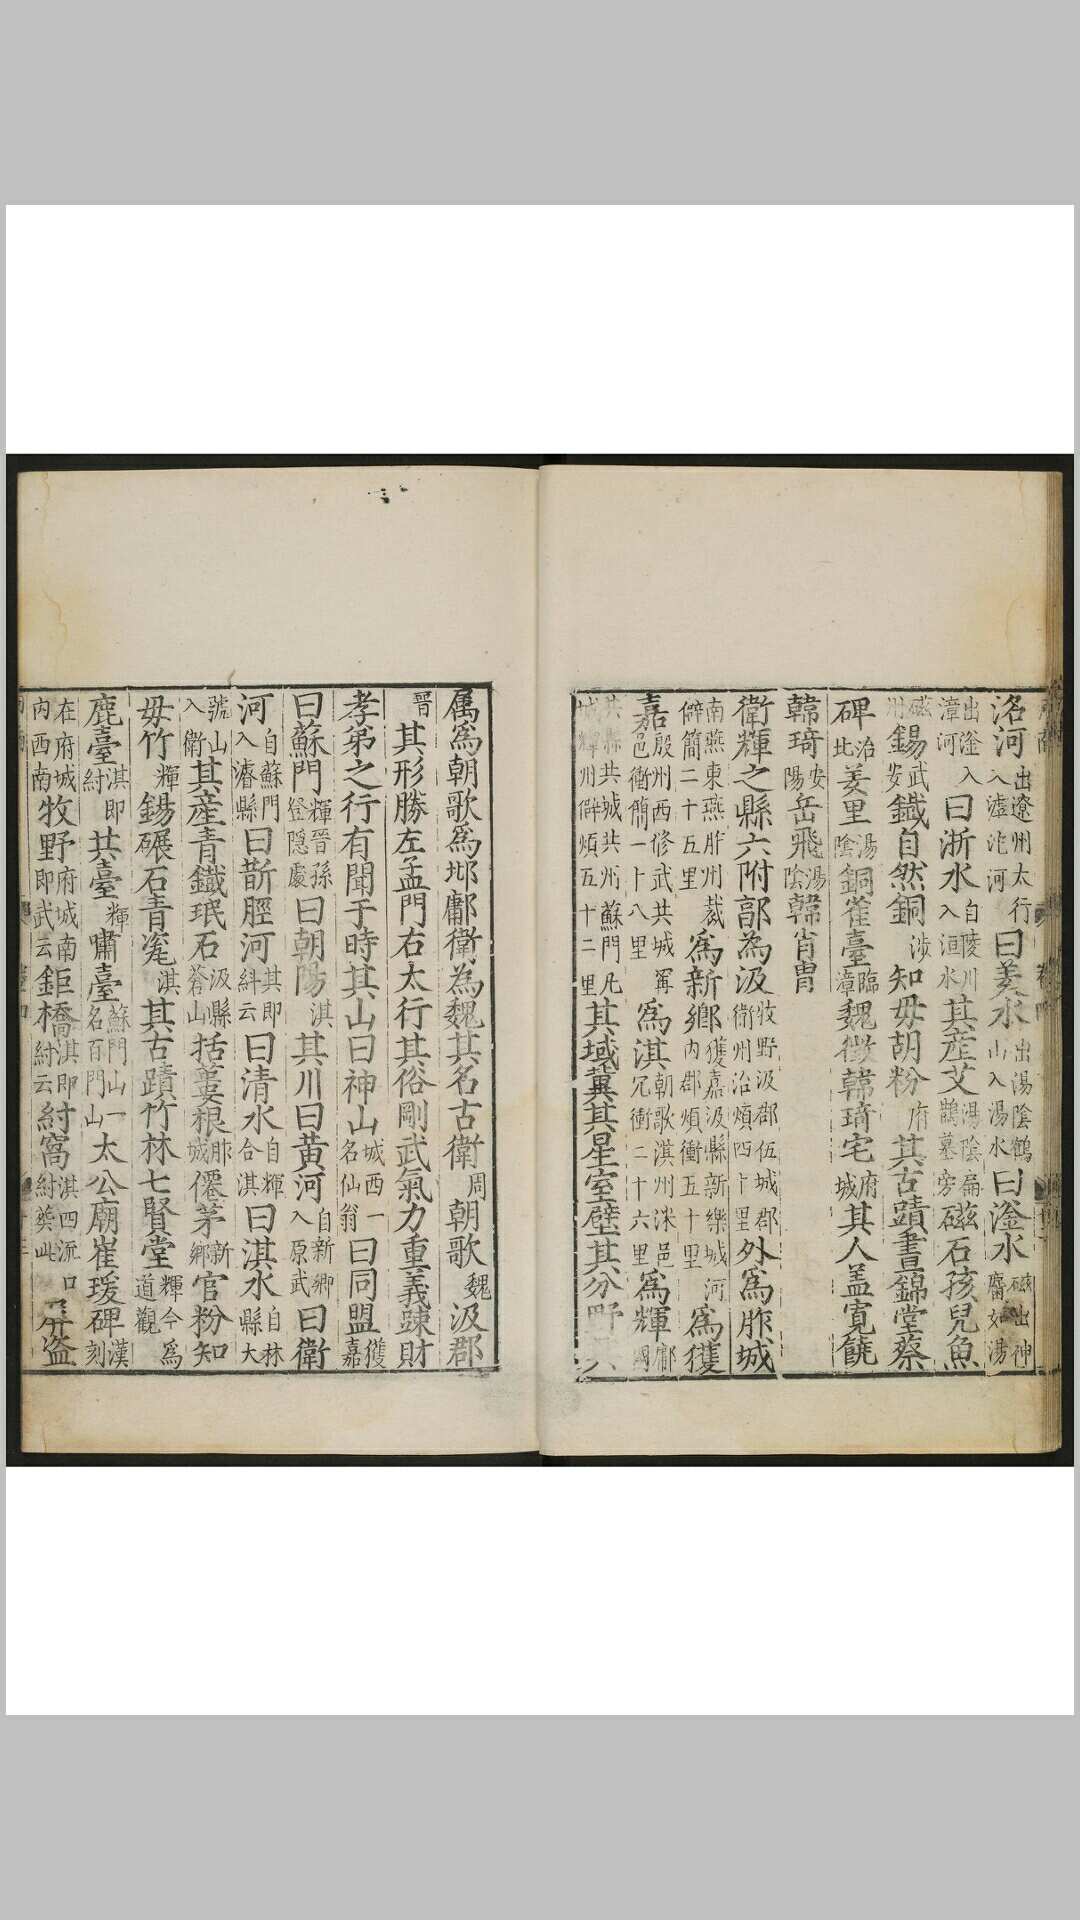 洛河出遼州太行入滹沱河曰羑水出湯陰鶴山入湯水曰滏水磁出神麕如湯
出滏入漳河曰浙水自陵川入洹水其産艾湯陰扁鵲墓旁磁石孩兒魚
磁州錫武安鐵自然銅涉知毋胡粉府其古蹟晝錦堂蔡
碑治北羑里湯陰銅雀臺臨漳魏徵韓琦宅府城其人盖寛饒
韓琦安陽岳飛湯陰韓肖胄
衛輝之縣六附郭為汲牧野汲郡伍城郡衛州治煩四十里外爲胙城
南燕東燕胙州裁僻簡二十五里爲新鄉獲嘉汲縣新樂城河內郡煩衝五十里爲獲
嘉殷州西修武共城甯邑衝簡一十八里爲淇朝歌淇州沬邑冗衝二十六里爲輝鄘國
共縣共城共州蘇門凡城輝州僻煩五十二里其域冀其星室壁其分野
属爲朝歌爲邶鄘衛為魏其名古衛周朝歌魏汲郡
晉其形勝左孟門右太行其俗剛武氣力重義踈財
孝弟之行有聞于時其山曰神山城西一名仙翁曰同盟獲嘉
曰蘇門輝晉孫登隱處曰朝陽淇其川曰黃河自新鄉入原武曰衛
河自蘇門入濬縣曰斮脛河其即紂云曰清水自輝合淇曰淇水自林縣大
號山入衛其産青鐵珉石汲縣蒼山括蔞根胙城僊茅新鄉官粉知
毋竹輝錫碾石青䂳淇其古蹟竹林七賢堂輝今爲道觀
鹿臺淇即紂共臺輝嘯臺蘇門山一名百門山太公廟崔瑗碑漢刻
在府城內西南牧野府城南即武云鉅橋淇即紂云紂窩淇四流口紂葬此盜